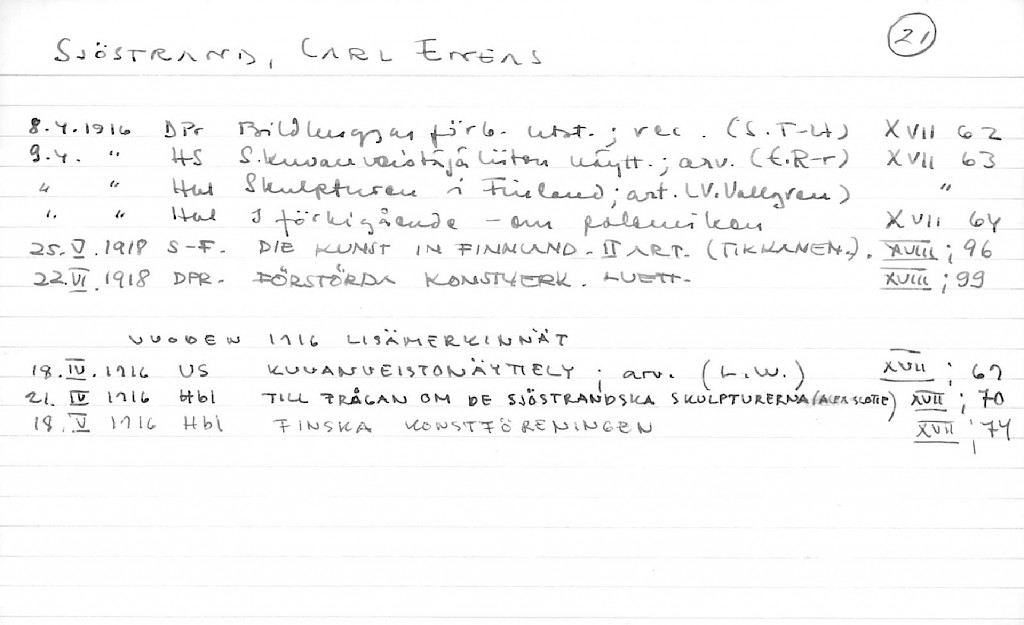 21
SJÖSTRAND, CARL ENEAS
8.4.1916 DPr Bildhuggar förb. utst.; rec. (S.T-H) XVII 62
9.4. " HS S.kuvanveistäjäliiton näytt.; arv. (E.R-r) XVII 63
" " Hbl Skulpturen i Finland; art. (V.Vallgren) "
" " Hbl I förbigående - om polemiken XVII 64
25.V.1918 S-F. DIE KUNST IN FINNLAND. II ART. (TIKKANEN.). XVIII; 96
22.VI.1918 DPR. FÖRSTÖRDA KONSTVERK. LUETT. XVIII; 99
VUODEN 1916 LISÄMERKINNÄT
18.IV.1916 US KUVANVEISTONÄYTTELY; arv. (L.W.) XVII; 69
21. IV 1916 Hbl TILL FRÅGAN OM DE SJÖSTRANDSKA SKULPTURERNA XVII; 70
18. V 1916 Hbl FINSKA KONSTFÖRENINGEN XVII; 74